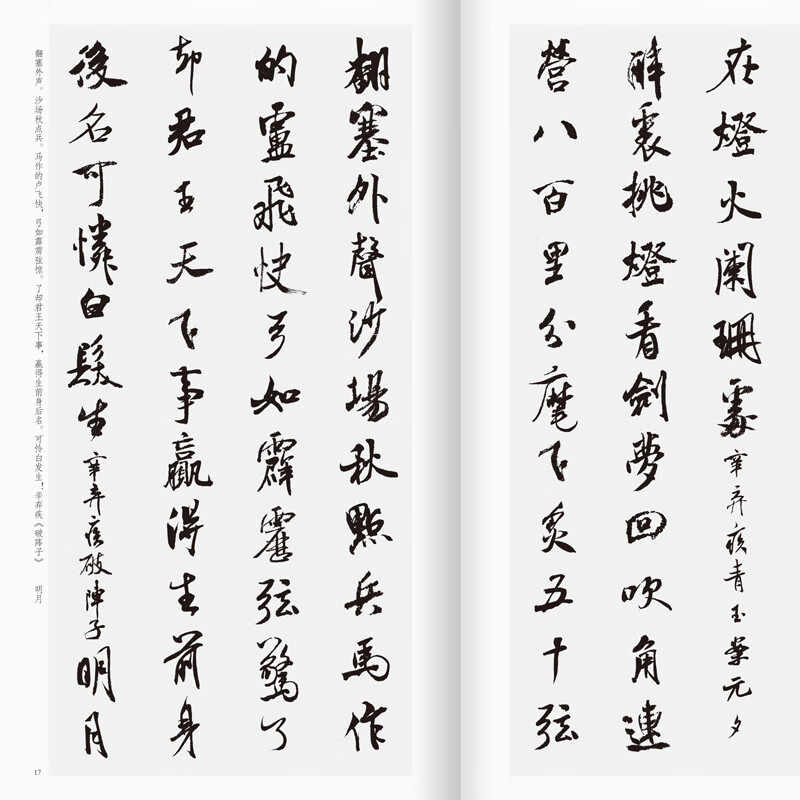 在燈火闌珊處辛弃疾青玉案元夕
醉裏挑燈看劍夢回吹角連
營八百里分麾下炙五十弦
翻塞外聲沙場秋點兵馬作
的盧飛快弓如霹靂弦驚了
却君王天下事贏得生前身
後名可憐白髮生辛弃疾破陣子明月
翻塞外声。沙场秋点兵。马作的卢飞快,弓如霹雳弦惊。了却君王天下事,赢得生前身后名。可怜白发生!辛弃疾《破阵子》 明月
17